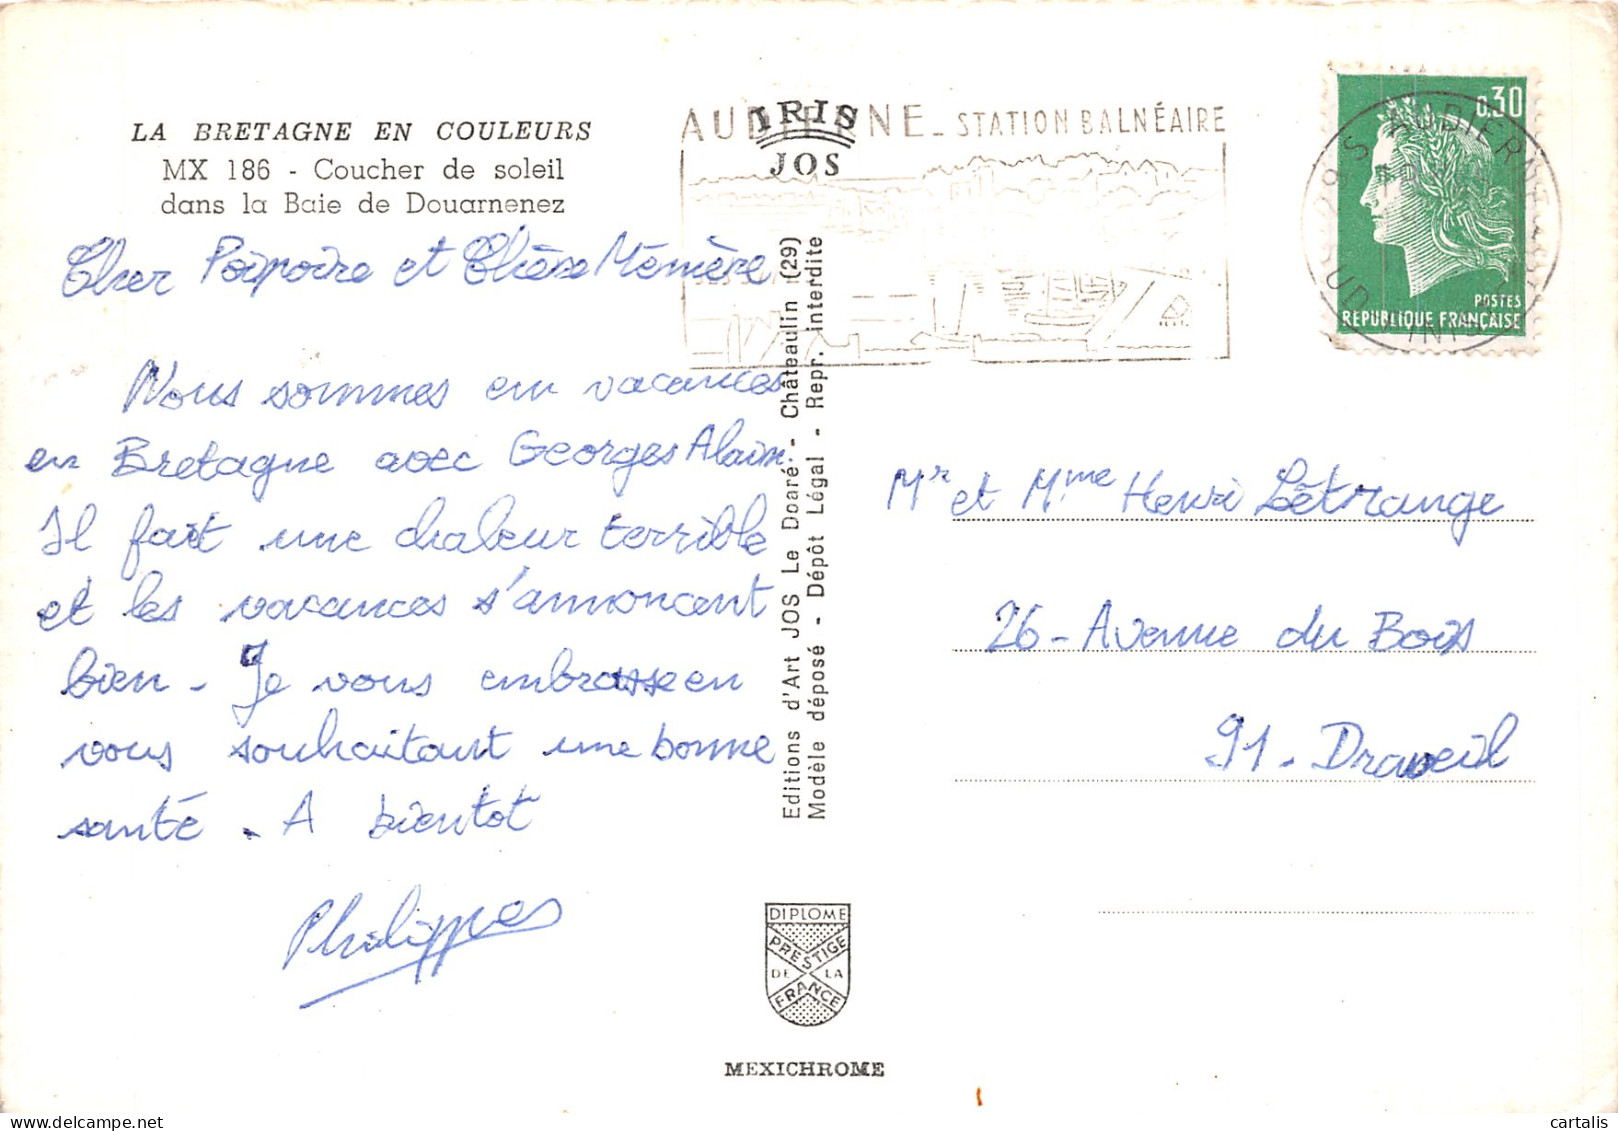 LA BRETAGNE EN COULEURS
MX 186 - Coucher de soleil
dans la Baie de Douarnenez
Cher Poipoire et Chère Mémère
Nous sommes en vacances
en Bretagne avec Georges Alain.
Il fait une chaleur terrible
et les vacances s'annoncent
bien - Je vous embrasse en
vous souhaitant une bonne
santé. A bientot
Philippe
IRIS
JOS
AUDIERNE - STATION BALNÉAIRE
Editions d'Art JOS Le Doaré - Châteaulin (29)
Modèle déposé - Dépôt Légal - Repr. interdite
0,30
POSTES
REPUBLIQUE FRANÇAISE
29 S AUDIERNE
Mr et Mme Henri Létrange
26 - Avenue du Bois
91 - Draveil
DIPLOME
PRESTIGE
DE LA
FRANCE
MEXICHROME
cartalis